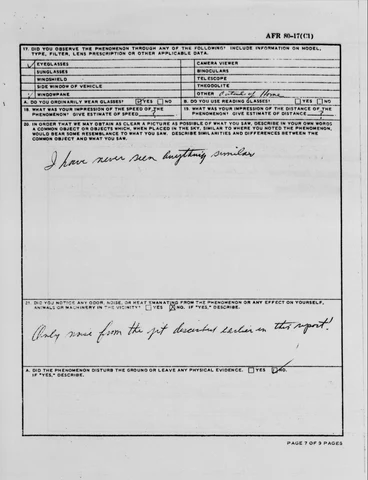 AFR 80-17(C1)
17. DID YOU OBSERVE THE PHENOMENON THROUGH ANY OF THE FOLLOWING? INCLUDE INFORMATION ON MODEL, TYPE, FILTER, LENS PRESCRIPTION OR OTHER APPLICABLE DATA.
EYEGLASSES CAMERA VIEWER
SUNGLASSES BINOCULARS
WINDSHIELD TELESCOPE
SIDE WINDOW OF VEHICLE THEODOLITE
WINDOWPANE OTHER Outside of Home
A. DO YOU ORDINARILY WEAR GLASSES? YES NO B. DO YOU USE READING GLASSES? YES NO
18. WHAT WAS YOUR IMPRESSION OF THE SPEED OF THE PHENOMENON? GIVE ESTIMATE OF SPEED ?
19. WHAT WAS YOUR IMPRESSION OF THE DISTANCE OF THE PHENOMENON? GIVE ESTIMATE OF DISTANCE ?
20. IN ORDER THAT WE MAY OBTAIN AS CLEAR A PICTURE AS POSSIBLE OF WHAT YOU SAW, DESCRIBE IN YOUR OWN WORDS
A COMMON OBJECT OR OBJECTS WHICH, WHEN PLACED IN THE SKY, SIMILAR TO WHERE YOU NOTED THE PHENOMENON,
WOULD BEAR SOME RESEMBLANCE TO WHAT YOU SAW. DESCRIBE SIMILARITIES AND DIFFERENCES BETWEEN THE
COMMON OBJECT AND WHAT YOU SAW.
I have never seen anything similar
21. DID YOU NOTICE ANY ODOR, NOISE, OR HEAT EMANATING FROM THE PHENOMENON OR ANY EFFECT ON YOURSELF,
ANIMALS OR MACHINERY IN THE VICINITY? YES NO. IF "YES," DESCRIBE.
Only noise from the jet described earlier in this report!
A. DID THE PHENOMENON DISTURB THE GROUND OR LEAVE ANY PHYSICAL EVIDENCE. YES NO
IF "YES," DESCRIBE.
PAGE 7 OF 9 PAGES